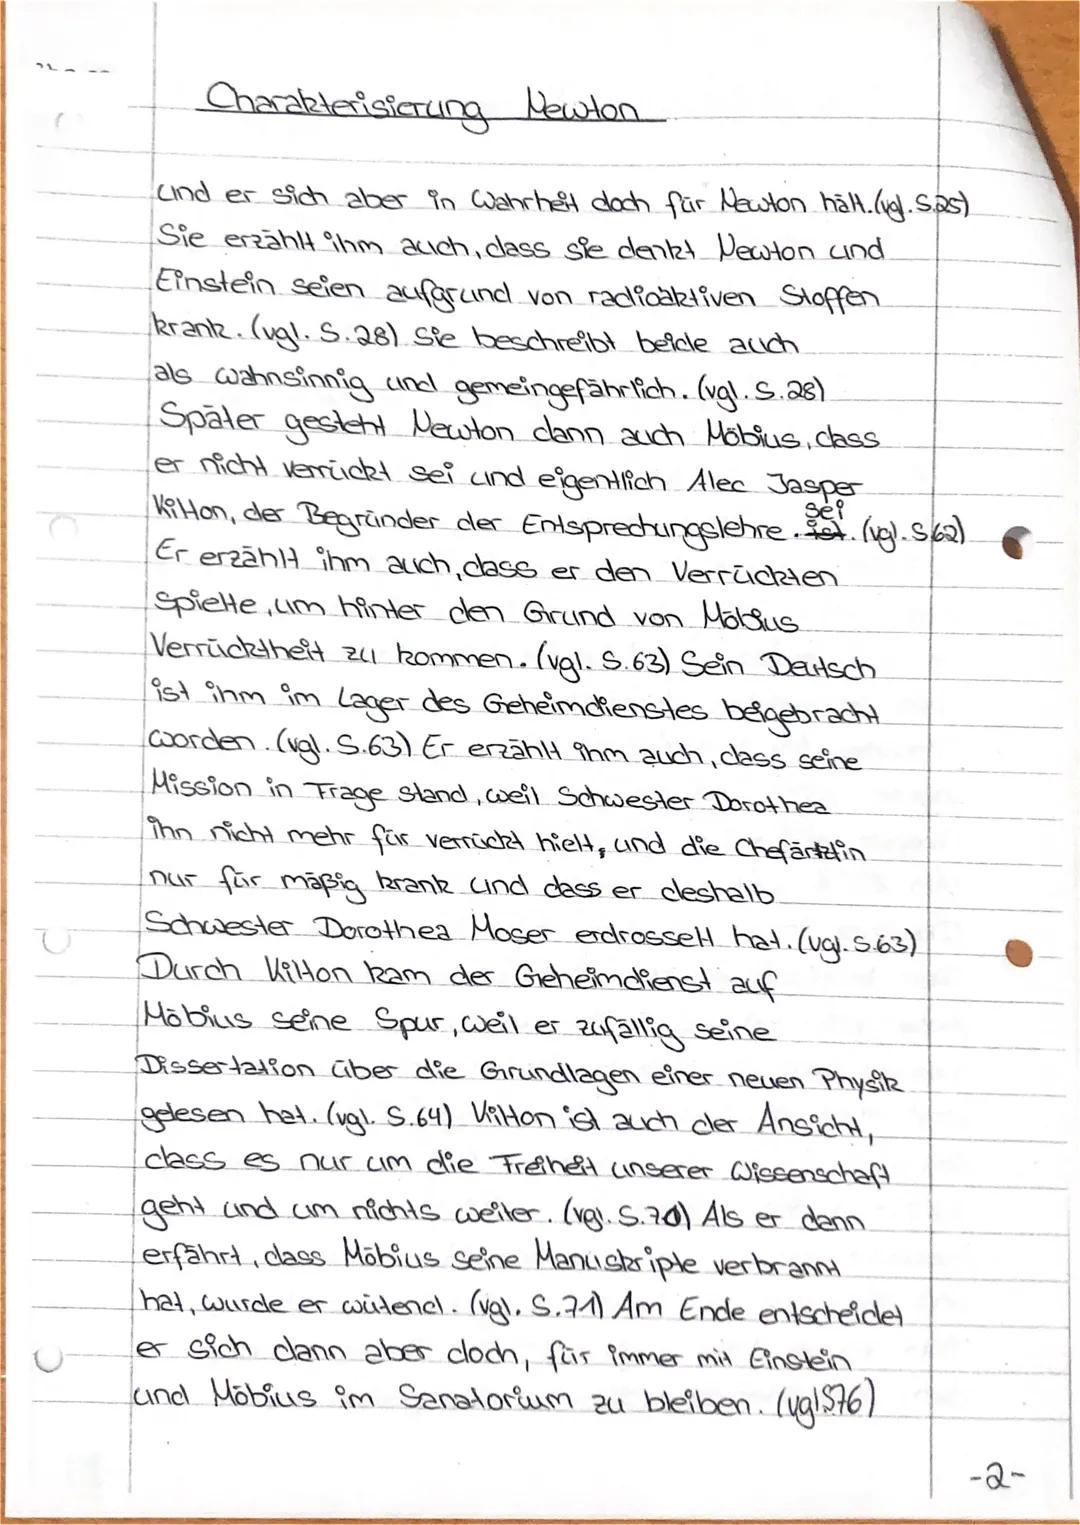 Charakterisierung Newton
und er sich aber in Wahrheit doch für Newton hält. (vgl. S.25)
Sie erzählt ihm auch, dass sie denkt Newton und
Einstein seien aufgrund von radioaktiven Stoffen
krank. (vgl. S. 28) Sie beschreibt beide auch
als wahnsinnig und gemeingefährlich. (vgl. S. 28)
Später gesteht Newton dann auch Möbius, dass
er nicht verrückt sei und eigentlich Alec Jasper
sei
Kilton, der Begründer der Entsprechungslehre. ist. (vgl. S.62)
Er erzählt ihm auch, dass er den Verrückten
spielte, um hinter den Grund von Möbius
Verrücktheit zu kommen. (vgl. S. 63) Sein Deutsch
ist ihm im Lager des Geheimdienstes beigebracht
worden. (vgl. S. 63) Er erzählt ihm auch, dass seine
Mission in Frage stand, weil Schwester Dorothea
ihn nicht mehr für verrückt hielt, und die Chefärtzin
nur für mäßig krank und dass er deshalb
Schwester Dorothea Moser erdrosselt hat. (vgl. S. 63)
Durch Kilton kam der Geheimdienst auf
Möbius seine Spur, weil er zufällig seine
Dissertation über die Grundlagen einer neuen Physik
gelesen hat. (vgl. S. 64) Kilton ist auch der Ansicht,
dass es nur um die Freiheit unserer Wissenschaft
geht und um nichts weiter. (vgl. S. 70) Als er dann
erfährt, dass Möbius seine Manuskripte verbrannt
hat, wurde er wütend. (vgl. S. 71) Am Ende entscheidet
er sich dann aber doch, für immer mit Einstein
und Möbius im Sanatorium zu bleiben. (vgl S76)
-2-